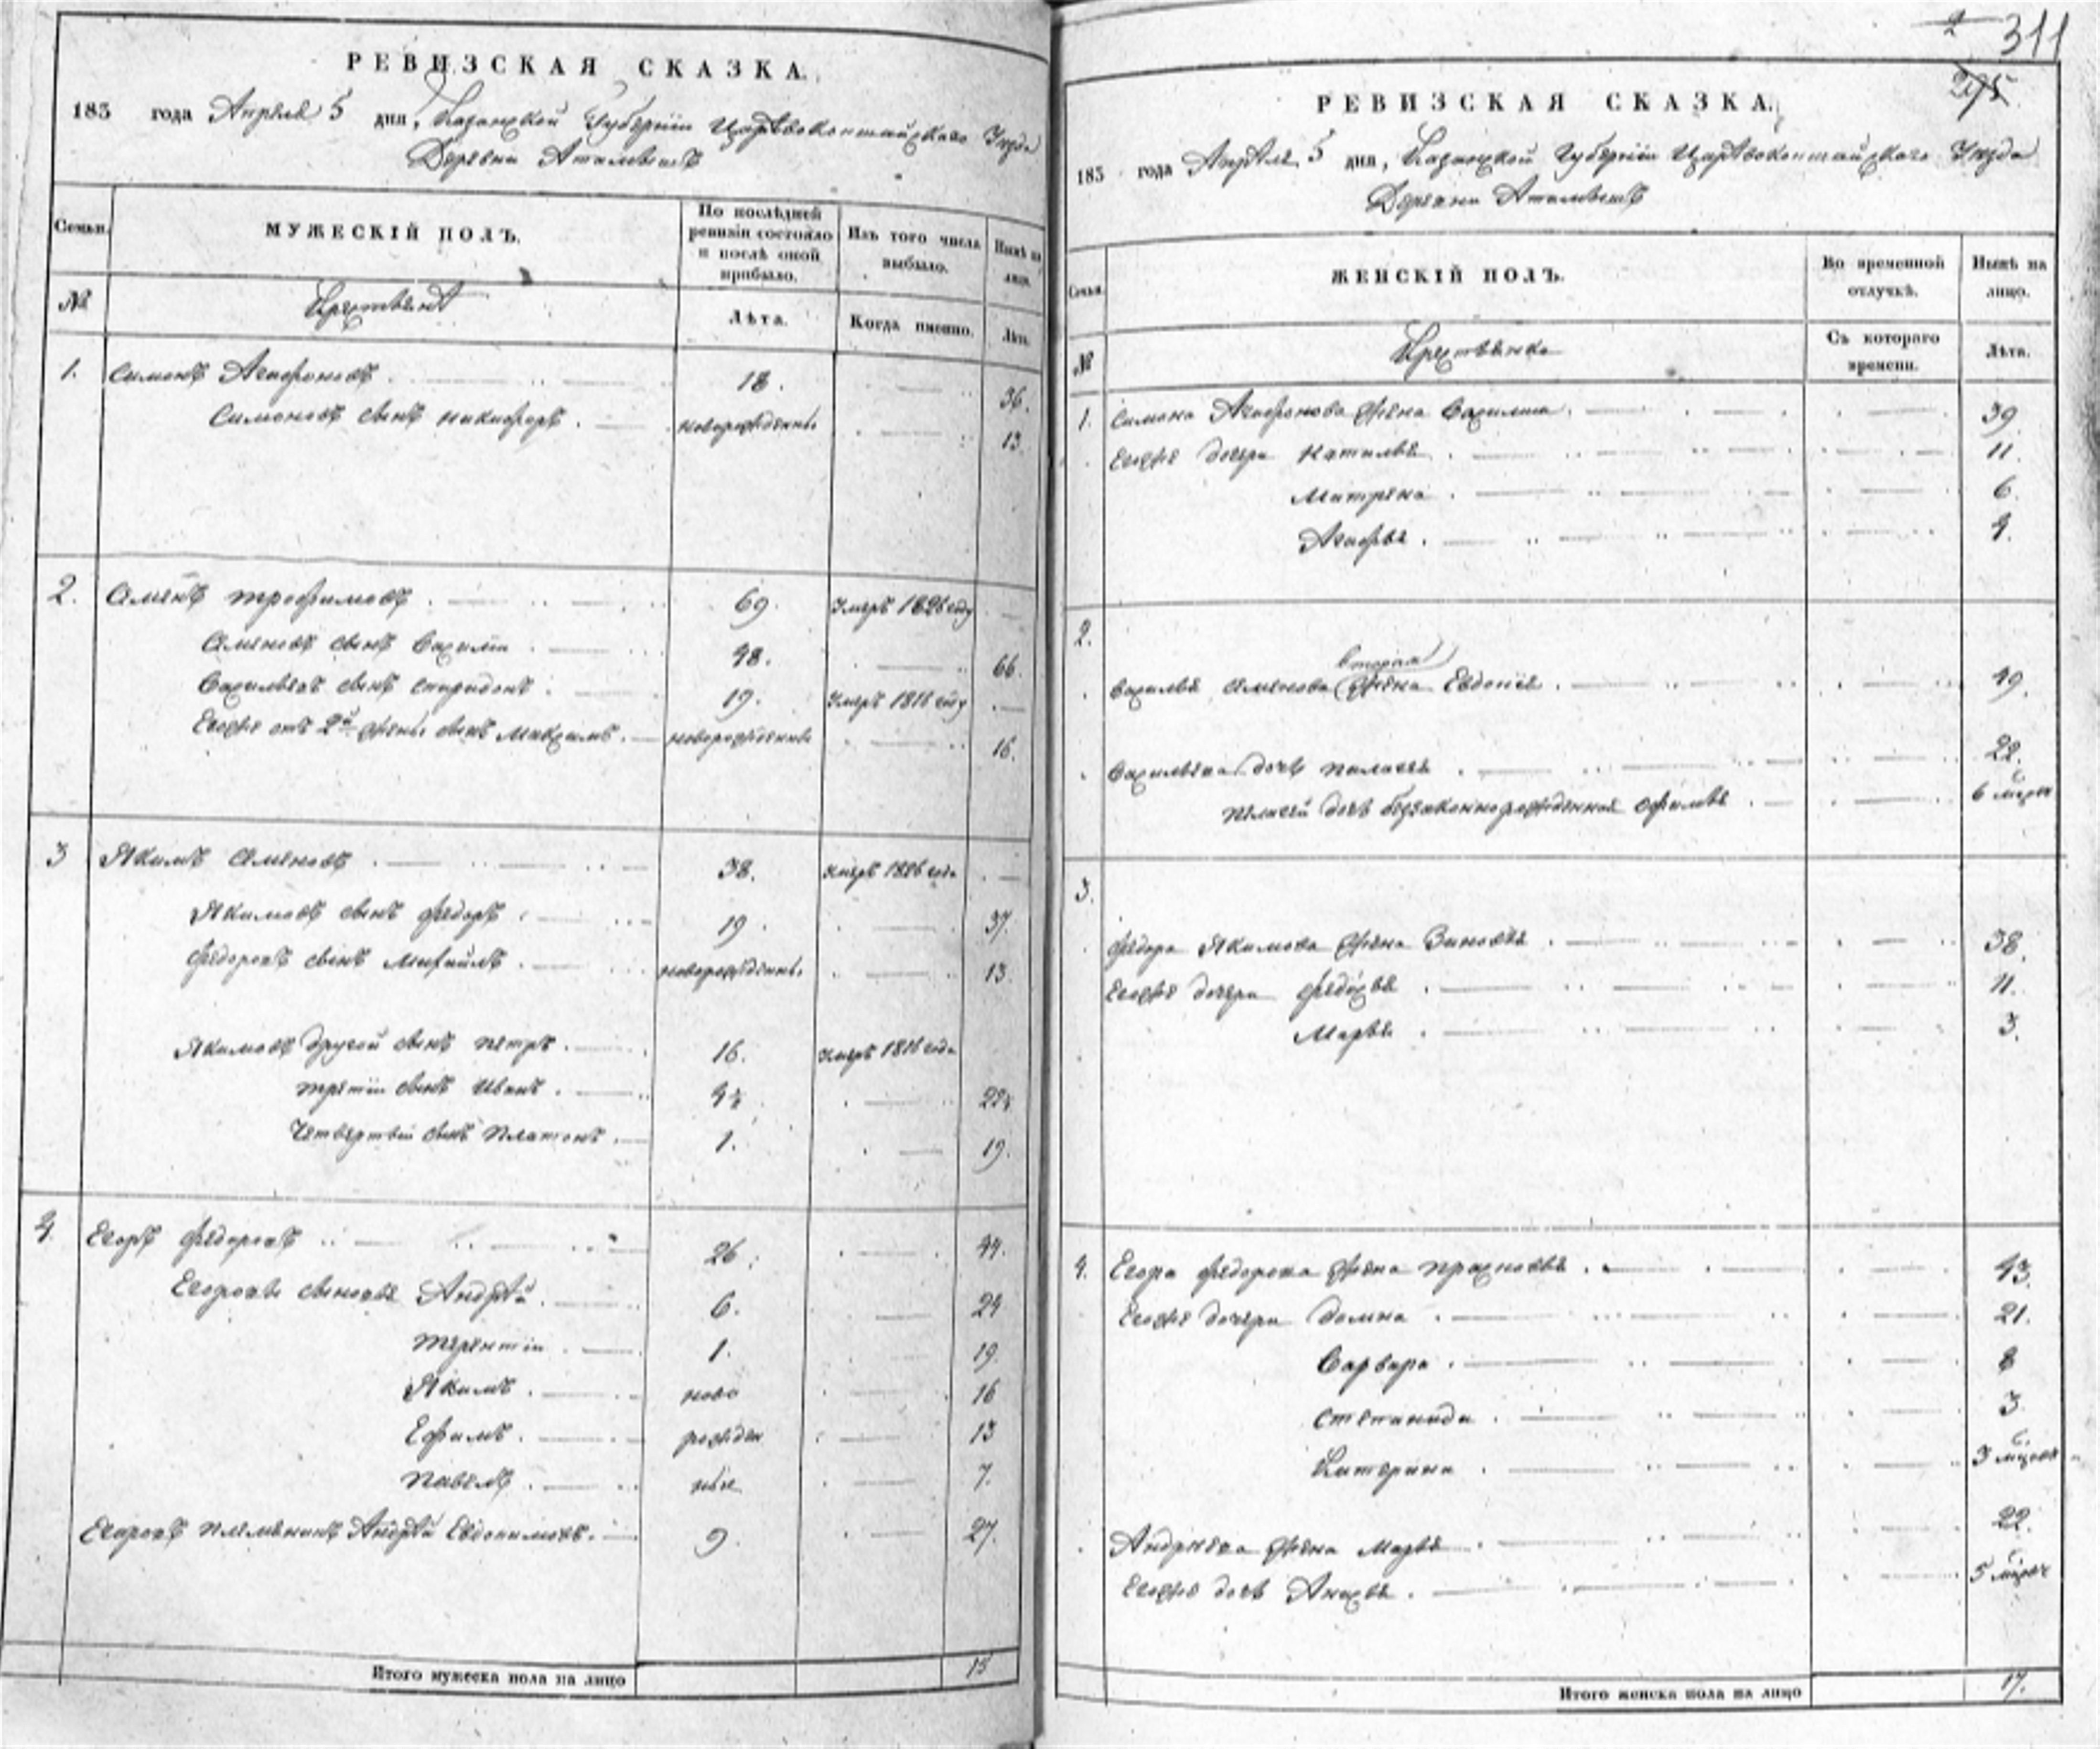 РЕВИЗСКАЯ СКАЗКА.
183 года Апреля 5 дня, Казанской Губернии Царевококшайскаго Уезда
Деревни
СЕМЬИ. МУЖЕСКІЙ ПОЛЪ. По послѣдней ревизіи состояло и послѣ оной прибыло. Изъ того числа выбыло. Нынѣ на лицо.
№ Лѣта. Когда именно. Лѣта.
1. Симонъ Агафоновъ 18. 36.
Симоновъ сынъ никифоръ новорожденны 13.
2. Семенъ трофимовъ 69. Умеръ 1826 году
Семеновъ сынъ Василіи 48. 66.
Васильевъ сынъ спиридонъ 19. Умеръ 1816 году
Егоже отъ 2й жены сынъ Максимъ новорожденны 16.
3 Якимъ Семеновъ 38. умеръ 1826 года
Якимовъ сынъ федоръ 19. 37.
федоровъ сынъ Михайлъ новорожденны 13.
Якимовъ другой сынъ петръ 16. умеръ 1816 года
третіи сынъ Иванъ 4½ 22½
Четвертыи сынъ Платонъ 1. 19.
4. Егоръ федоровъ 26. 44.
Егоровы сыновья Андрѣй 6. 24
терентіи 1. 19.
Якимъ ново 16
Ефимъ рожден 13
павелъ ные 7.
Егоровъ племянникъ Андрѣй Евдокимовъ 9. 27.
Итого мужеска пола на лицо 15
2 311
РЕВИЗСКАЯ СКАЗКА.
183 года Апреля 5 дня, Казанской Губерніи Царевококшайскаго Уезда
Деревни
Семьи. ЖЕНСКІЙ ПОЛЪ. Во временной отлучкѣ. Нынѣ на лицо.
№ Съ котораго времени. Лѣта.
1. симона Агафонова жена Василиса 39.
Егоже дочери Наталья 11.
Матрена 6.
Агафья 4.
2.
вторая
василья семенова жена Евдокия 49.
Васильева дочь пелагея 22.
пелагеи дочь беззаконнорожденная Офимья 6
3.
федора Якимова жена Зиновья 38.
Егоже дочери федосья 11.
Марья 3.
4. Егора федорова жена прасковья 43.
Егоже дочери домна 21.
Варвара 8
степанида 3
Катерина 3
Андреева жена Марья 22.
Егоже дочь Анисья 5
Итого женска пола на лицо 17.